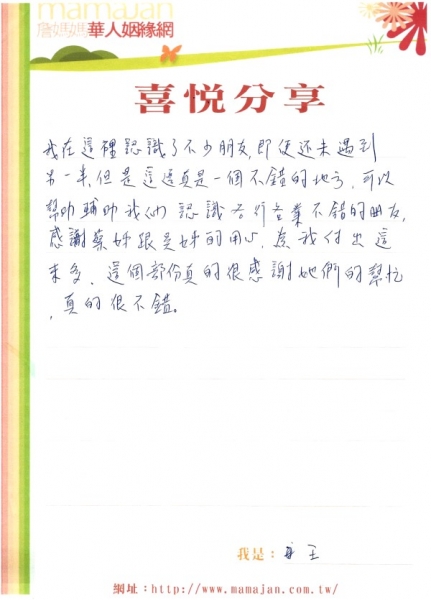 mamajan
詹媽媽華人姻緣網
喜悅分享
我在這裡認識了不少朋友,即使还未遇到
另一半,但是這邊真是一個不錯的地方,可以
幫助輔助我们認識各行各業不錯的朋友,
感謝蔡姊跟吳姊的用心,為我付出這
未多、這個部份真的很感謝她們的幫忙
,真的很不錯。
我是:
王
網址:http://www.mamajan.com.tw/